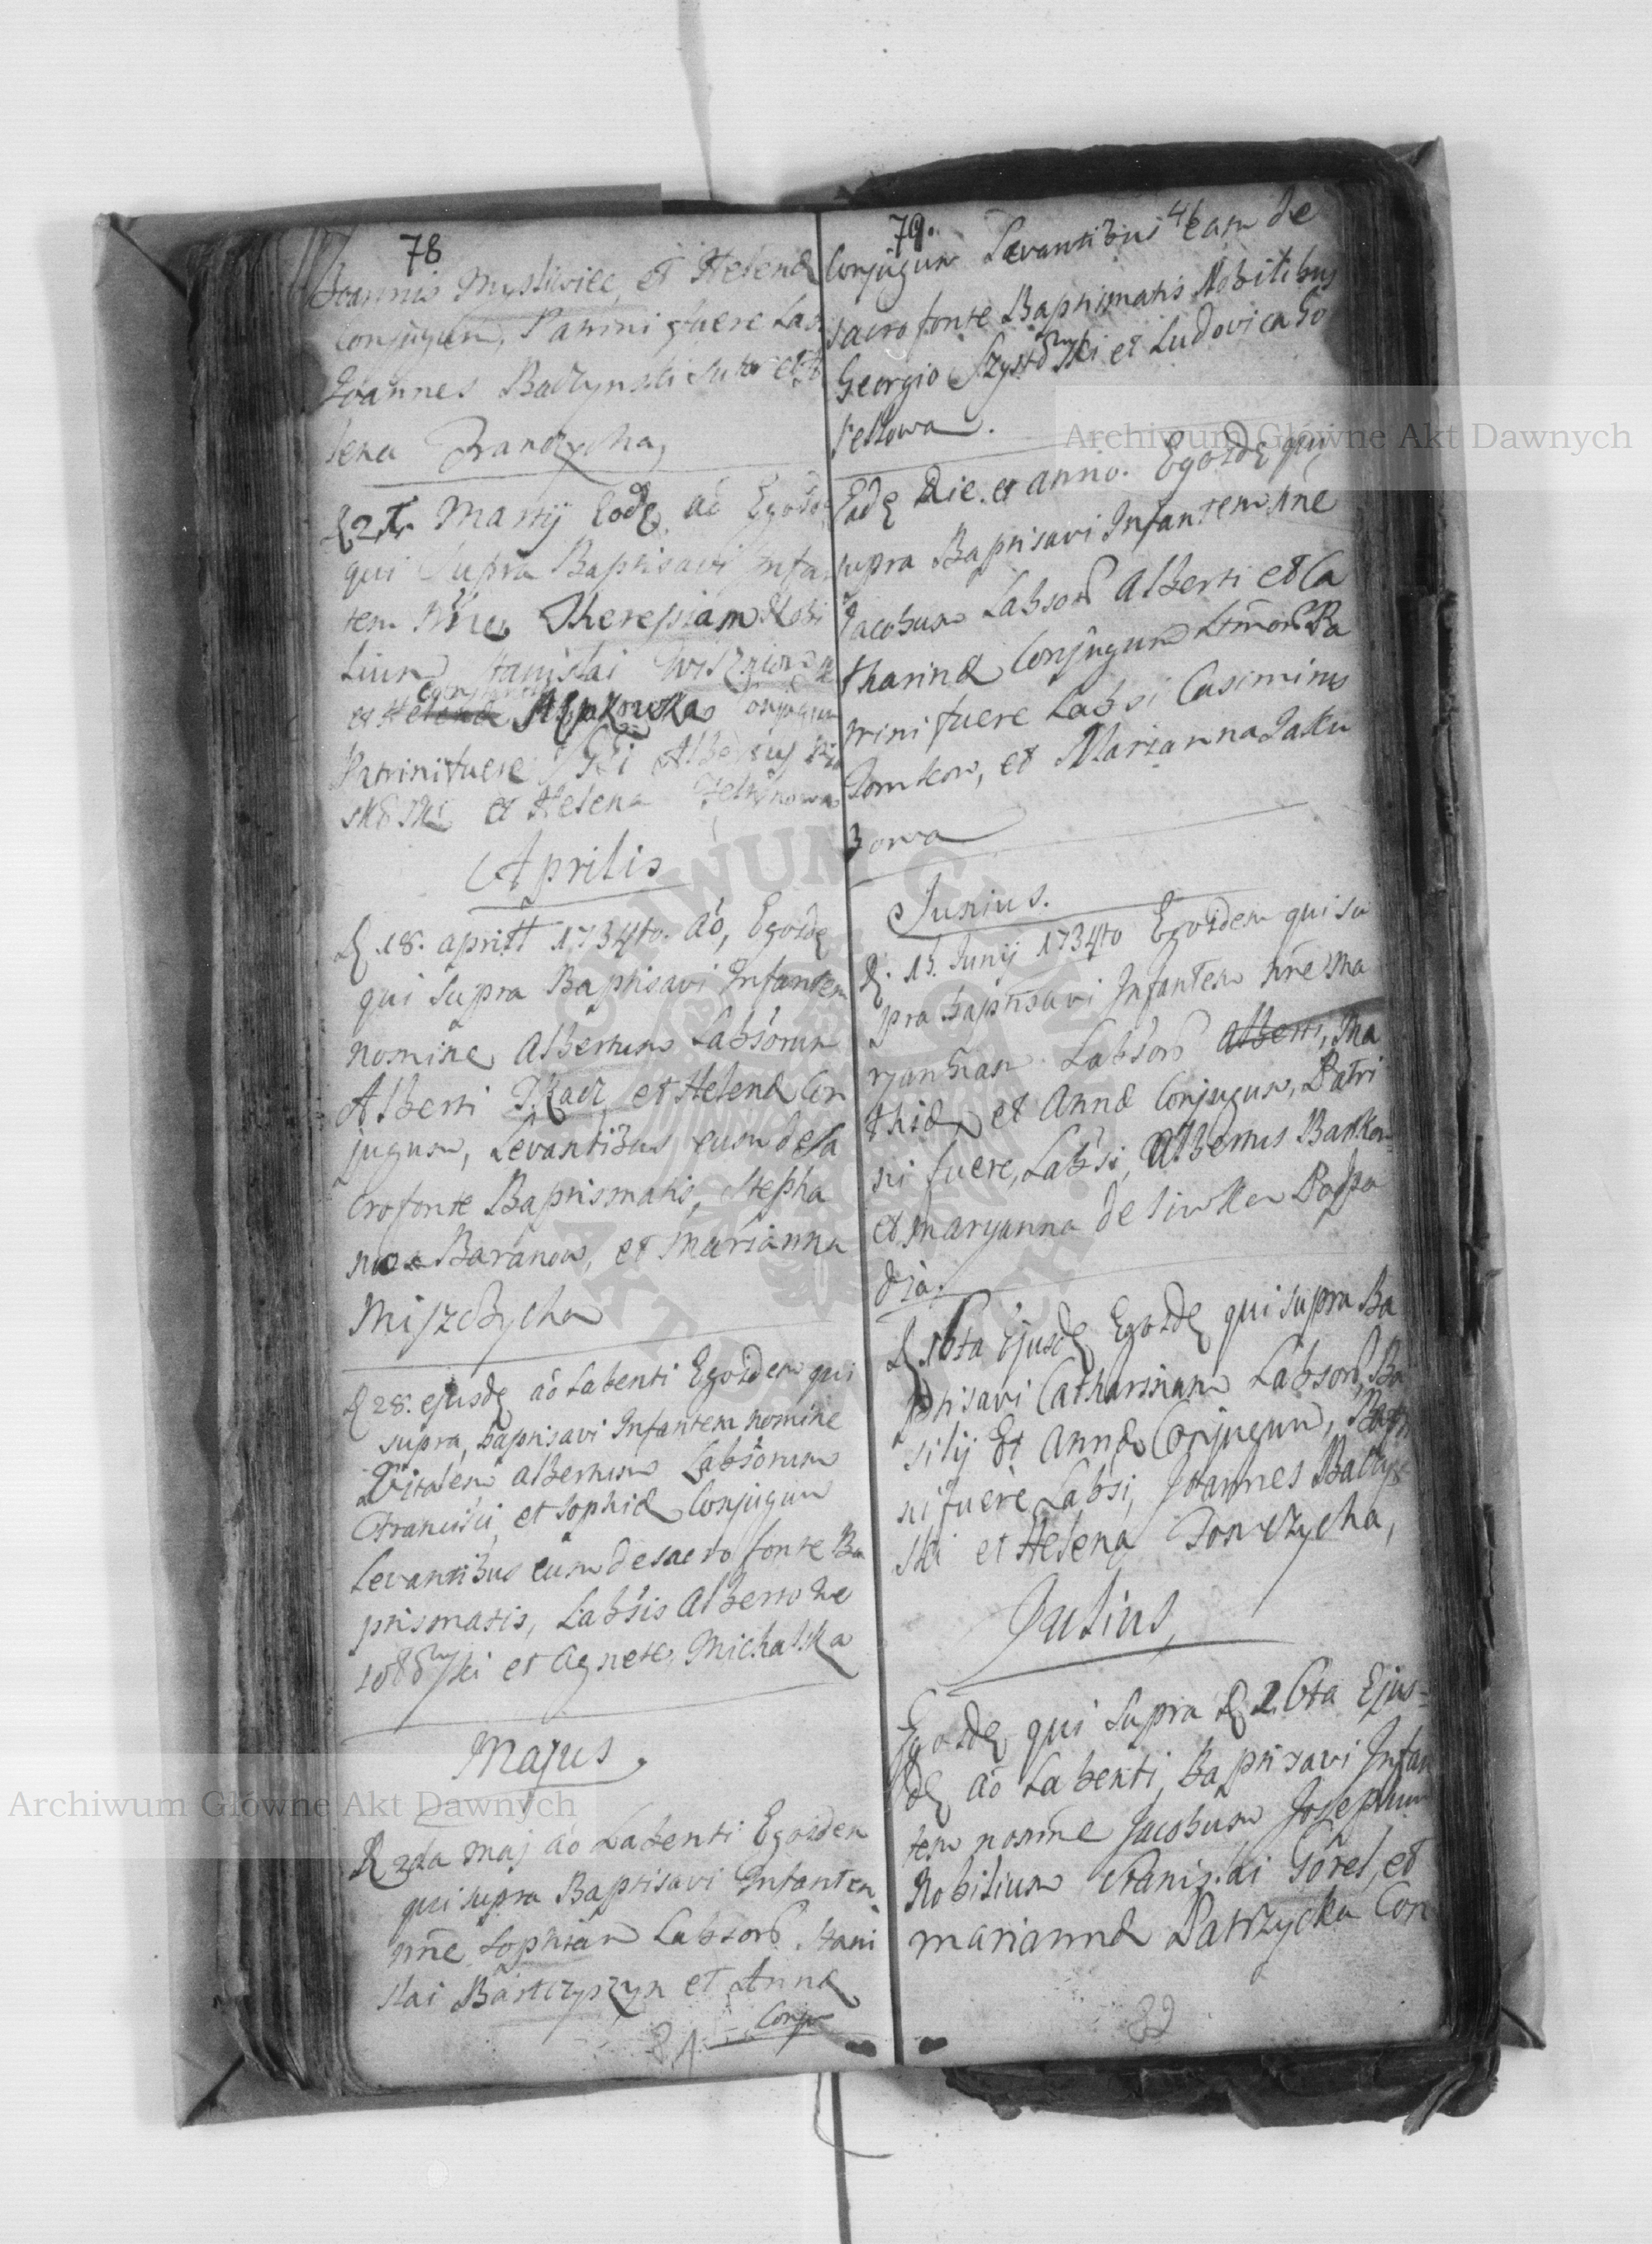 78
Joannis Mysliwiec, et Helenæ
Conjugum, Patrini fuere Lab
Joannes Baczynski sutor et He
lena Franczycha,
D 27 Martij eodẽ aõ Egoidẽ
qui supra Baptisavi Infan
tem nñe Theressiam Nobi
lium Stanislai
et Helenæ Conjugum
Patrini fuere Albertus
et Helena
Aprilis
D 18. aprill 1734to. aõ, Egoidẽ
qui supra Baptisavi Infantem
nomine Albertum Labsorum
Alberti Tkacz, et Helenæ Con
jugum, Levantibus eum de Sa
cro fonte Baptismatis, Stepha
no Baranow, et Marianna
Miszczycha
D 28. ejusdẽ aõ Labenti Egoidem qui
supra, baptisavi Infantem nomine
Vitalem Albertum Labsorum
Francisci, et Sophiæ Conjugum
Levantibus eum de sacro fonte Ba
ptismatis, Labsis Alberto
et Agnete Michalska
Majus.
D 2da Maj aõ Labenti Egoidem
qui supra Baptisavi Infantem
nñe Sophiam Labsor Stani
slai Bartczyszyn et Annæ
Conju
81
79.
46
Conjugum Levantibus eam de
sacro fonte Baptismatis Nobilibus
Georgio et Ludovica Go
stellowa.
Eadẽ Die et anno. Egoidẽ qui
supra Baptisavi Infantem nñe
Jacobum Labsor Alberti et Ca
tharinæ Conjugum Pa
trini fuere Labsi Casimirus
Tomkow, et Marianna Jaku
bowa
Junius.
D. 15. Junij 1734to Egoidem qui su
pra baptisavi Infantem nñe Ma
ryannam Labsor Alberti, Ma
thiæ et Annæ Conjugum, Patri
ni fuere, Labsi, Albertus Bankow
et Maryanna de Siwka
dia.
D 16ta Ejusdẽ Egoidẽ qui supra Ba
ptisavi Catharinam Labsor Ba
silij Et Annæ Conjugum, Patri
ni fuere Labsi, Joannes Baczyn
ski et Helena Tomczycha,
Julius,
Egoidẽ qui supra D 26ta Ejus=
dẽ aõ Labenti, baptisavi Infan
tem nomine Jacobum Josephum
Nobilium Stanislai Gorel, et
Mariannæ Patrzycka Con
82
Archiwum Główne Akt Dawnych
Archiwum Główne Akt Dawnych
ARCHIWUM GŁÓWNE AKT DAWNYCH